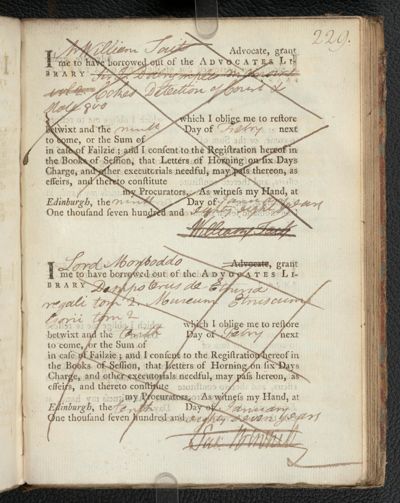 229.
I William Tait Advocate, grant
me to have borrowed out of the ADVOCATES LI-
BRARY
Cokes Detection of Court &
State 8vo
which I oblige me to restore
betwixt and the ninth Day of Febry next
to come, or the Sum of
in case of Failzie; and I consent to the Registration hereof in
the Books of Session, that Letters of Horning on six Days
Charge, and other executorials needful, may pass thereon, as
effeirs, and thereto constitute
my Procurators. As witness my Hand, at
Edinburgh, the ninth Day of January
One thousand seven hundred and eighty years
William Tait
I Lord Monboddo Advocate, grant
me to have borrowed out of the ADVOCATES LI-
BRARY Dempsterus de Etruria
regali tom 2 Museum Etruscum
Gorii tom 2
which I oblige me to restore
betwixt and the Day of Febry next
to come, or the Sum of
in case of Failzie; and I consent to the Registration hereof in
the Books of Session, that Letters of Horning on six Days
Charge, and other executorials needful, may pass thereon, as
effeirs, and thereto constitute
my Procurators. As witness my Hand, at
Edinburgh, the tenth Day of January
One thousand seven hundred and eighty seven years